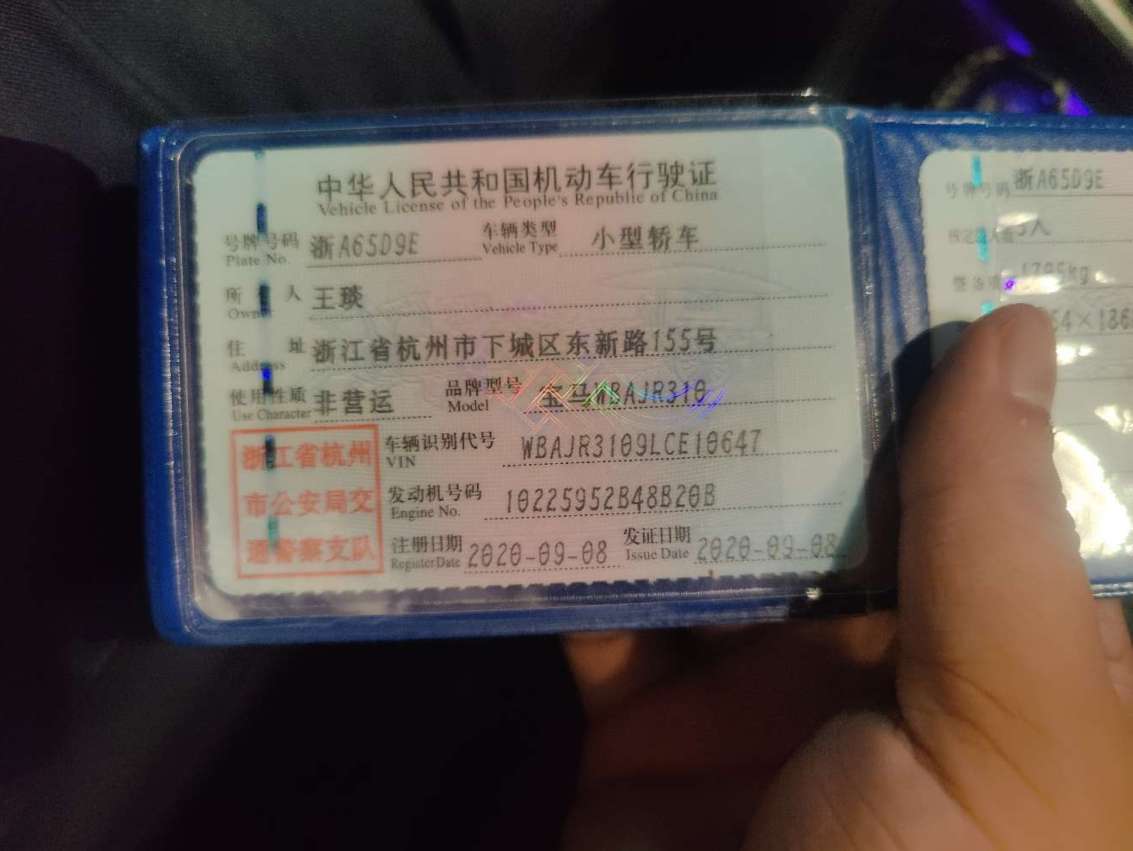 中华人民共和国机动车行驶证
Vehicle License of the People's Republic of China
号牌号码 浙A65D9E 车辆类型 小型轿车
Plate No. Vehicle Type
所 人 王琰
Owner
住 址 浙江省杭州市下城区东新路155号
Address
使用性质 非营运 品牌型号 宝马WBAJR310
Use Character Model
浙江省杭州
市公安局交
通警察支队
车辆识别代号 WBAJR3109LCE10647
VIN
发动机号码 10225952B48B20B
Engine No.
注册日期 2020-09-08 发证日期 2020-09-08
Register Date Issue Date
号牌号码 浙A65D9E
5人